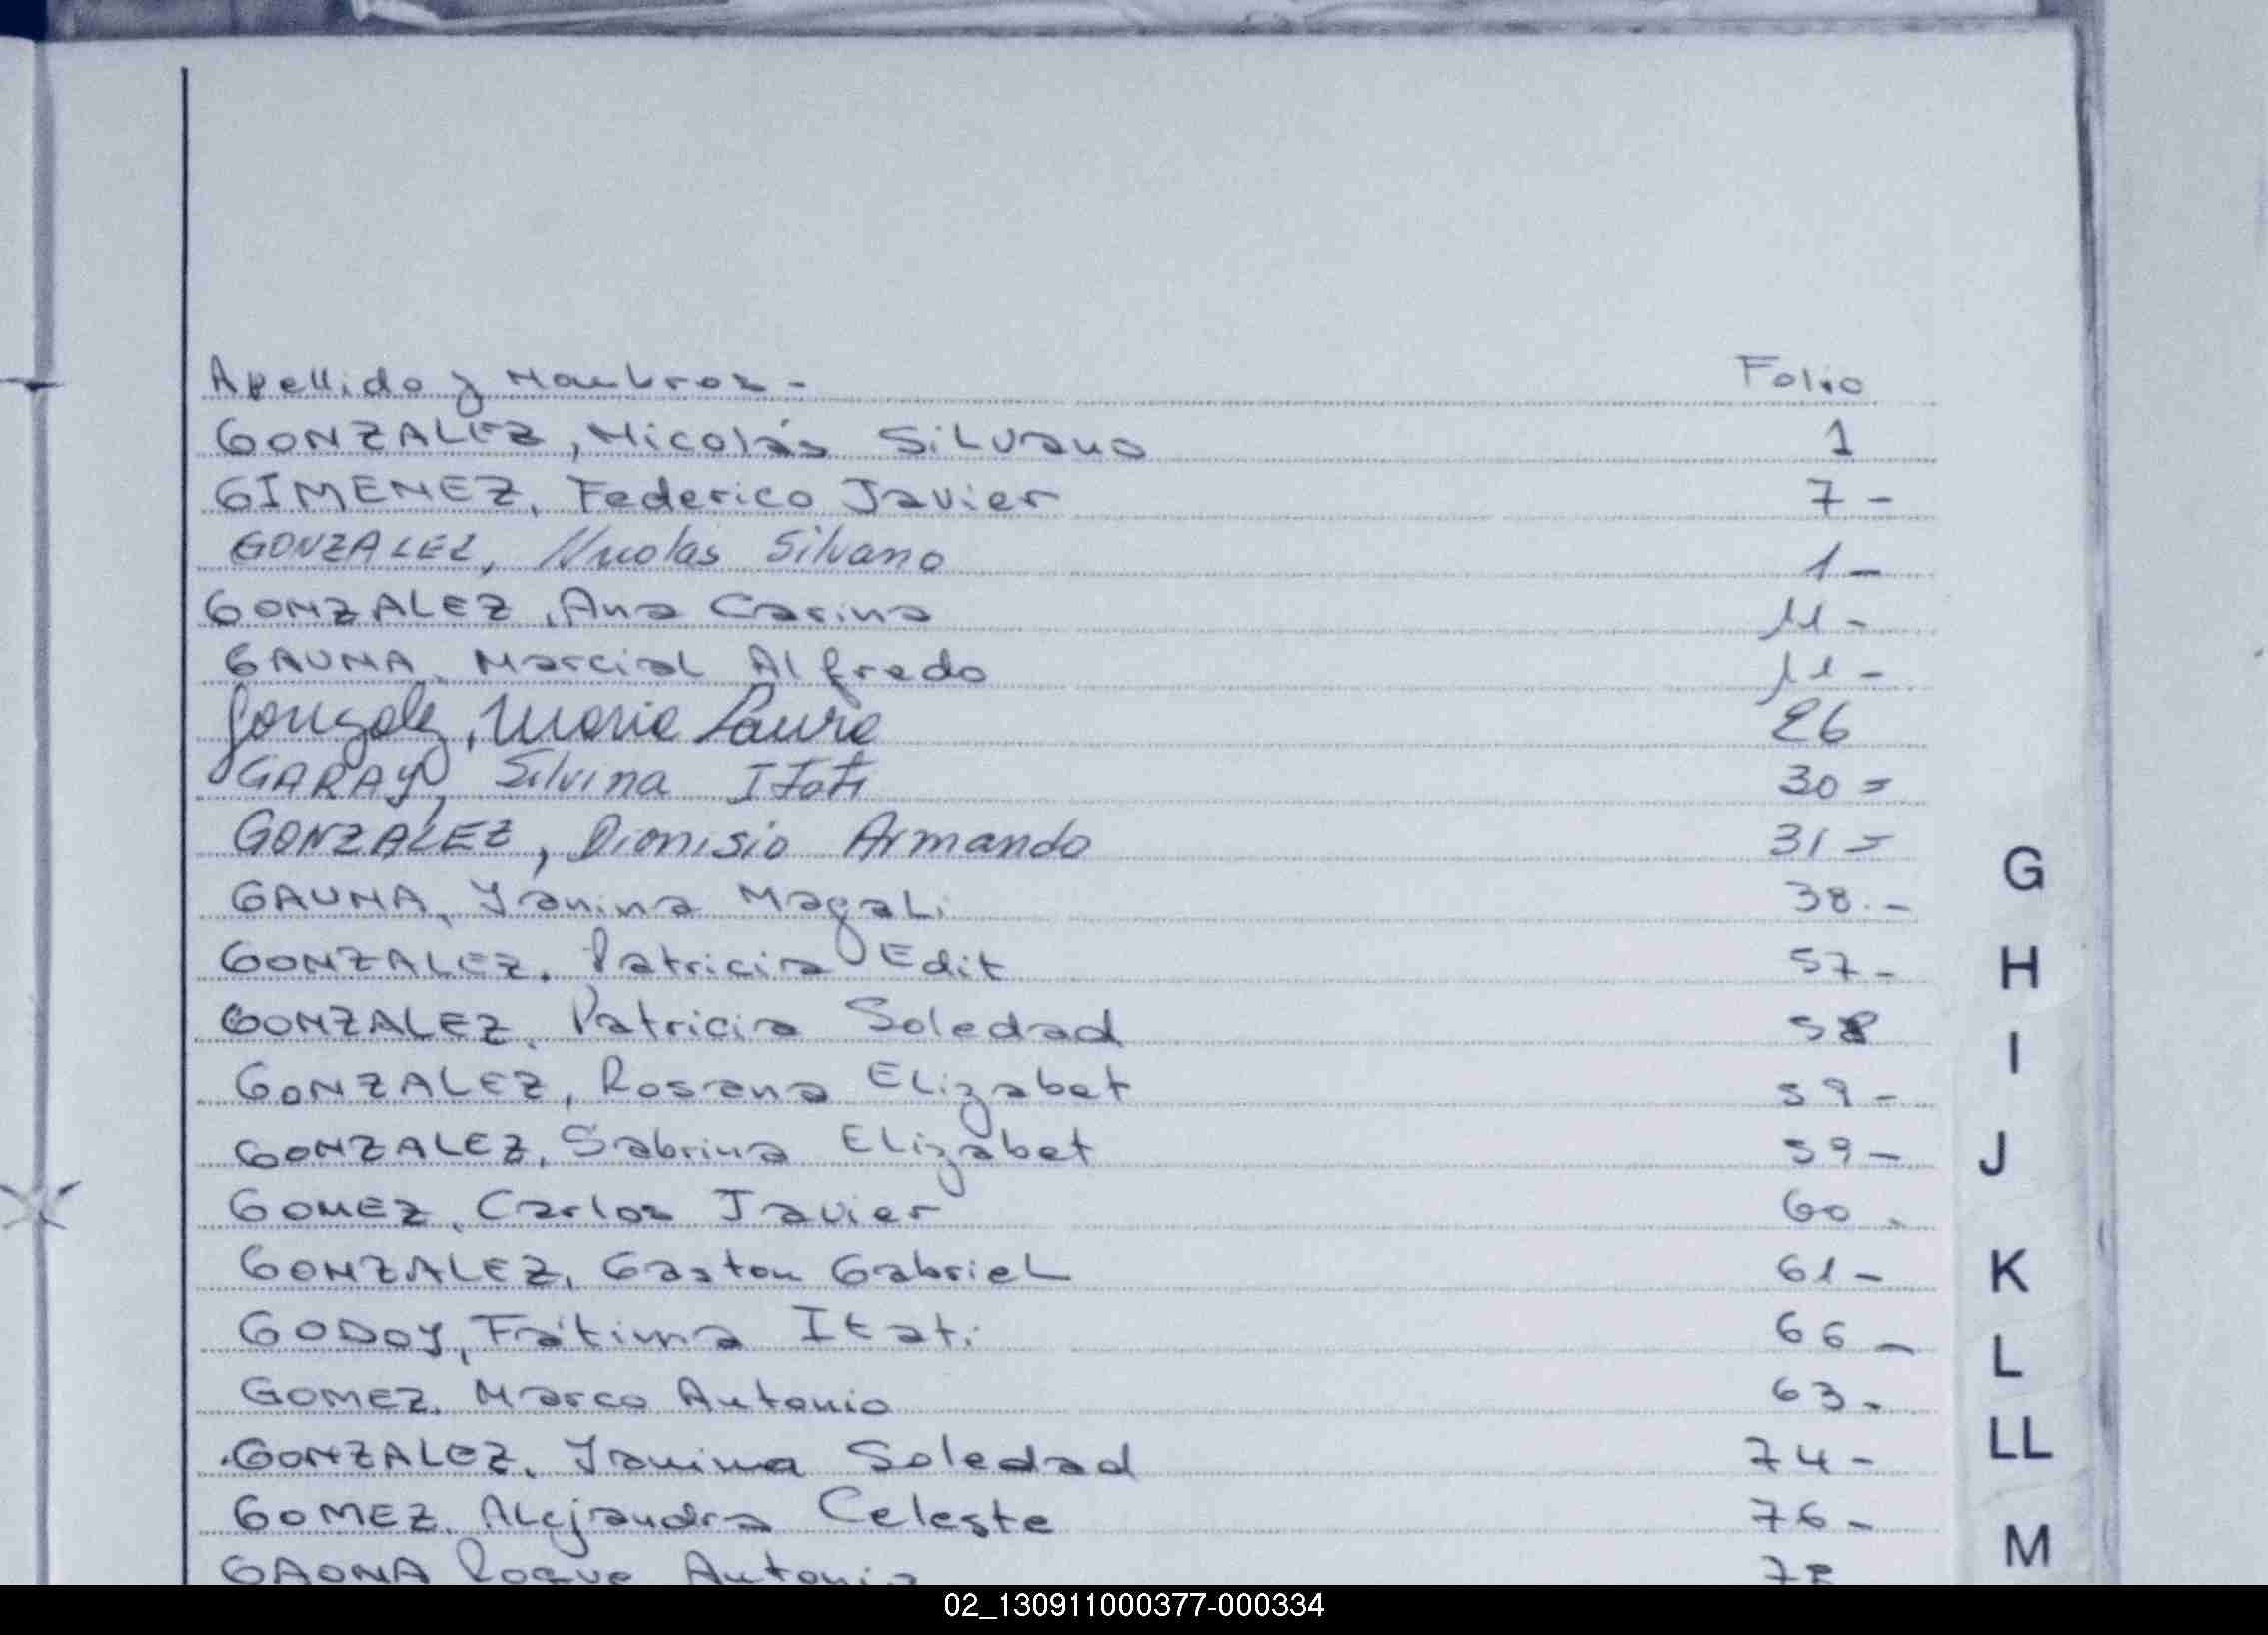 Apellido y Nombres - Folio
GONZALEZ, Nicolás Silvano 1
GIMENEZ, Federico Javier 7 -
GONZALEZ, Nicolas Silvano 1 -
GONZALEZ, Ana Carina 11 -
GAUNA, Marcial Alfredo 11 -
Gonzalez, Maria Laura 26
GARAY, Silvina Itati 30 =
GONZALEZ, Dionisio Armando 31 =
GAUNA, Yanina Magali 38 -
GONZALEZ, Patricia Edit 57 -
GONZALEZ, Patricia Soledad 58
GONZALEZ, Rosana Elizabet 59 -
GONZALEZ, Sabrina Elizabet 59 -
GOMEZ, Carlos Javier 60 -
GONZALEZ, Gaston Gabriel 61 -
GODOY, Fátima Itati 66 -
GOMEZ, Marco Antonio 63 -
GONZALEZ, Yanina Soledad 74 -
GOMEZ, Alejandra Celeste 76 -
GAONA Roque Antonio
G
H
I
J
K
L
LL
M
02_130911000377-000334